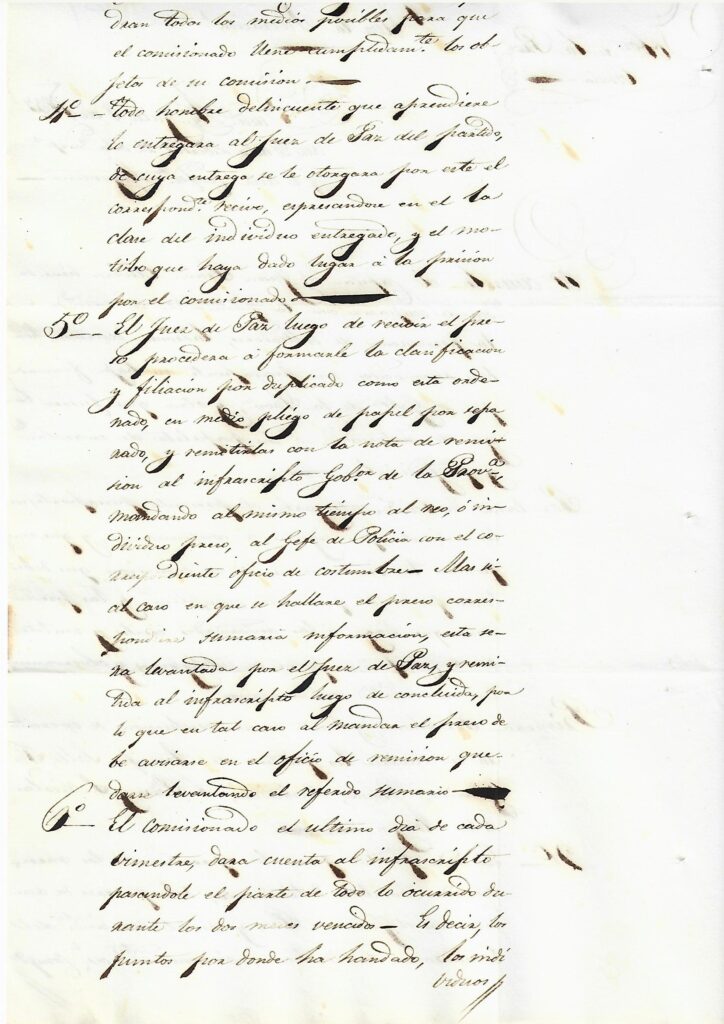 dran todos los medios posibles para que
el comisionado llene cumplidam.te los ob-
jetos de su comision.
4º - Todo hombre delincuente que aprendiere
lo entregara al Juez de Paz del partido,
de cuya entrega se le otorgara por este el
correspond.te recivo, espresandose en el la
clase del individuo entregado, y el mo-
tibo que haya dado lugar á la prision
por el comisionado.
5º - El Juez de Paz luego de recivir el pre-
so procedera á formarle la clasificacion
y filiacion por duplicado como esta orde-
nado, en medio pliego de papel por sepa
rado, y remitirlas con la nota de remi-
sion al infrascripto Gob.or de la Prov.a
mandando al mismo tiempo al reo, ó in-
dividuo preso, al Gefe de Policia con el co-
rrespondiente oficio de costumbre - Mas si
al caso en que se hallare el preso corres-
pondiera sumaria informacion, esta se-
ra levantada por el Juez de Paz, y remi-
tida al infrascripto luego de concluida, por
lo que en tal caso al mandar el preso de
be avisarse en el oficio de remision que-
darse levantando el referido sumario
6º - El comisionado el ultimo dia de cada
vimestre, dara cuenta al infrascripto
pasandole el parte de todo lo ocurrido du-
rante los dos meses vencidos - Es decir, los
puntos por donde ha handado, los indi
viduos